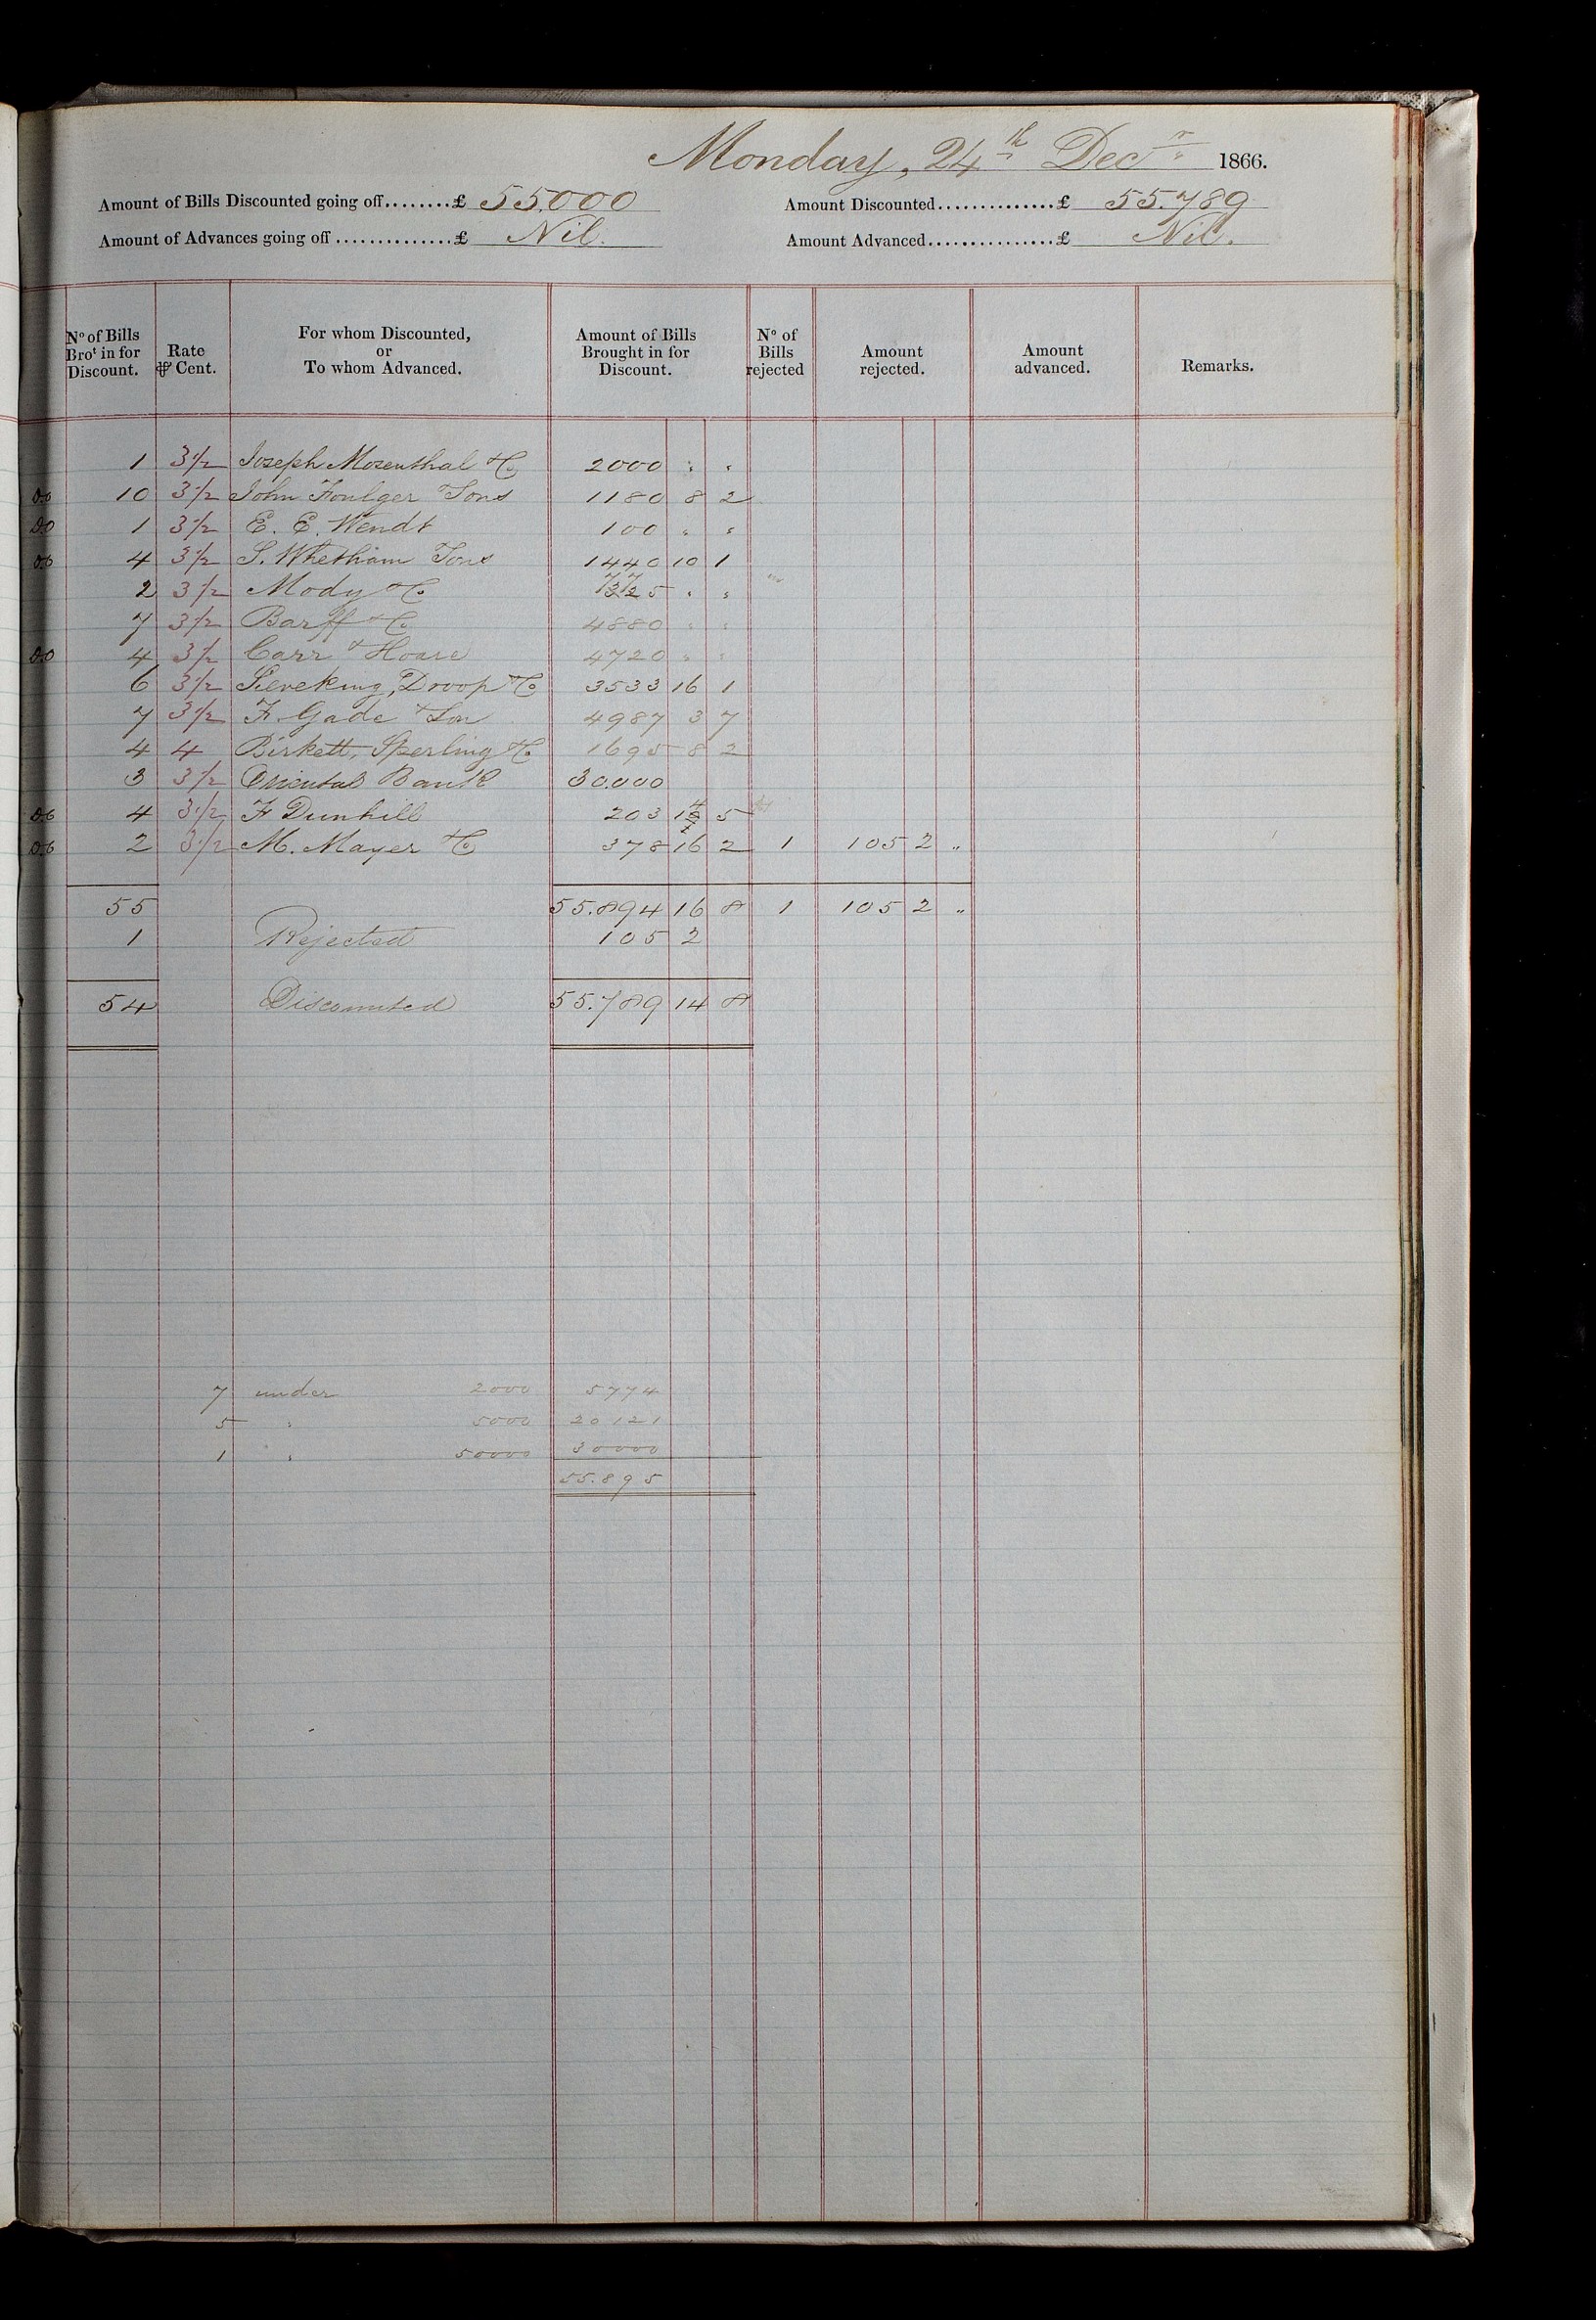 Monday, 24th Decr 1866.
Amount of Bills Discounted going off........£ 55,000 Amount Discounted..............£ 55.789
Amount of Advances going off..............£ Nil. Amount Advanced...............£ Nil.
No of Bills Brot in for Discount. Rate ⅌ Cent. For whom Discounted, or To whom Advanced. Amount of Bills Brought in for Discount. No of Bills rejected Amount rejected. Amount advanced. Remarks.
1 3½ Joseph Mosenthal & Co 2000 " "
Do 10 3½ John Foulger & Sons 1180 8 2
Do 1 3½ E. E. Wendt 100 " "
Do 4 3½ S. Whetham & Sons 1440 10 1
2 3½ Mody & Co 775 " "
7 3½ Barff & Co 4880 " "
Do 4 3½ Carr & Hoare 4720 " "
6 3½ Sieveking, Droop & Co 3533 16 1
7 3½ F. Gade & Son 4987 3 7
4 4 Birkett, Sperling & Co 1695 8 2
3 3½ Oriental Bank 30.000
Do 4 3½ F Dunhill 203 14 5
Do 2 3½ M. Mayer & Co 378 16 2 1 105 2 "
55 55.894 16 8 1 105 2 "
1 Rejected 105 2
54 Discounted 55.789 14 8
7 under 2000 5774
5 " 5000 20121
1 " 50000 30000
55.895